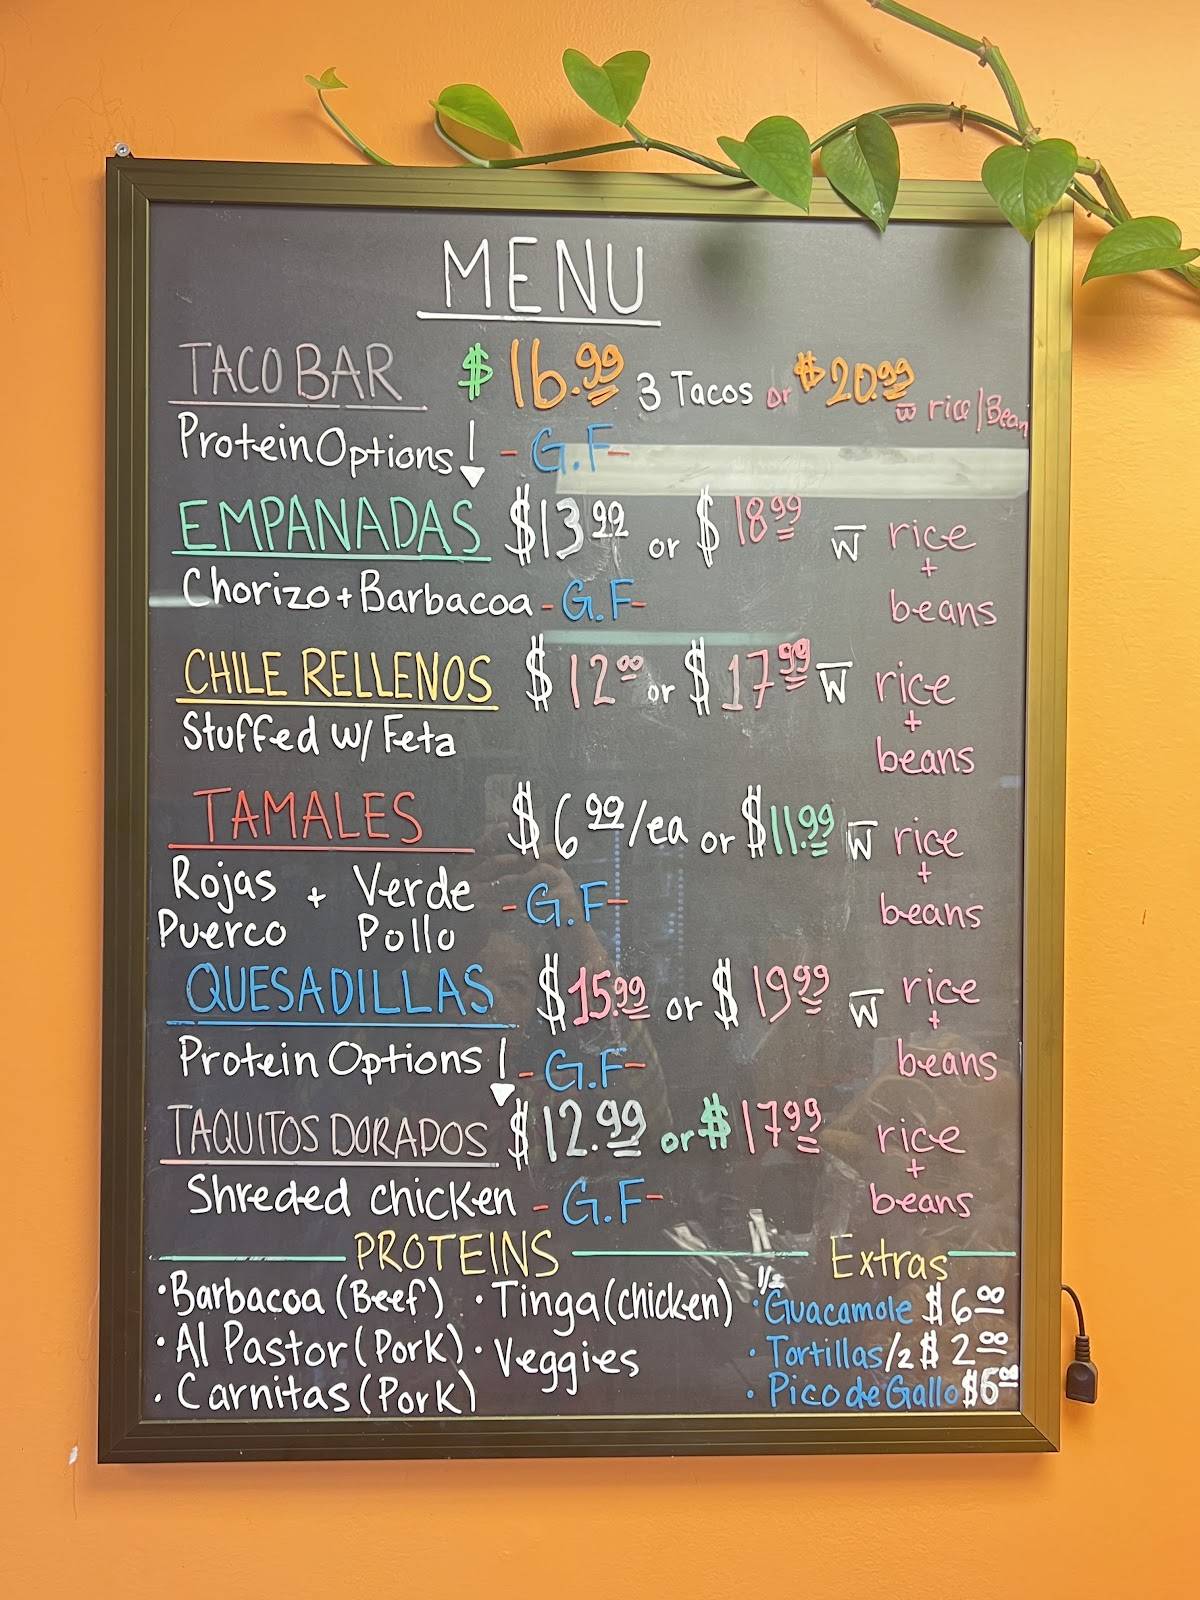 MENU
TACO BAR $16.99 3 Tacos or $20.99 w rice/Bean
Protein Options! - G.F-
EMPANADAS $13.99 or $18.99 w rice + beans
Chorizo + Barbacoa - G.F-
CHILE RELLENOS $12.00 or $17.99 w rice + beans
Stuffed w/ Feta
TAMALES $6.99/ea or $11.99 w rice + beans
Rojas + Verde - G.F-
Puerco Pollo
QUESADILLAS $15.99 or $19.99 w rice + beans
Protein Options! - G.F-
TAQUITOS DORADOS $12.99 or $17.99 rice + beans
Shreded chicken - G.F-
PROTEINS
• Barbacoa (Beef) • Tinga (chicken)
• Al Pastor (Pork) • Veggies
• Carnitas (Pork)
Extras
1/2
• Guacamole $6.00
• Tortillas/2 $2.00
• Pico de Gallo $6.00